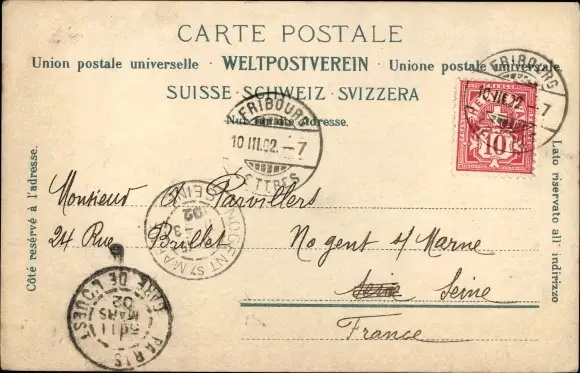 CARTE POSTALE
Union postale universelle · WELTPOSTVEREIN · Unione postale universale
SUISSE · SCHWEIZ · SVIZZERA
Nur für die Adresse.
Côté reservé à l'adresse.
Lato riservato all' indirizzo
FRIBOURG
10 III.02. – 7
LETTRES
FRIBOURG
10 III.02. – 7
10
Monsieur A Parvillers
24 Rue Brillet Nogent s/ Marne
Seine Seine
France
NOGENT S/ MARNE
SEINE
02
PARIS
GARE DE L'OUEST
11
MARS
02